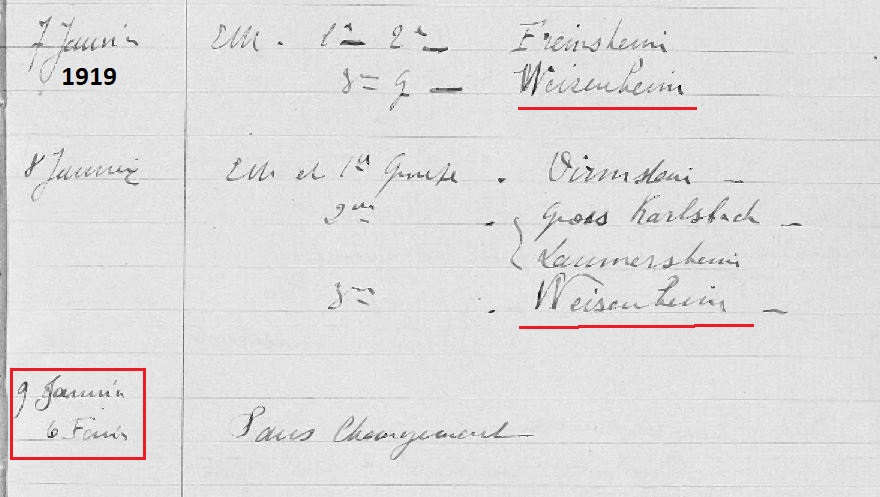 7 Janvier EM. 1er 2me Freinsheim
1919 3me G Weisenheim
8 Janvier EM et 1er Groupe. Dirmstein
2me. Gross Karlsbach
Laumersheim
3me. Weisenheim
9 Janvier
6 Février Sans Changement